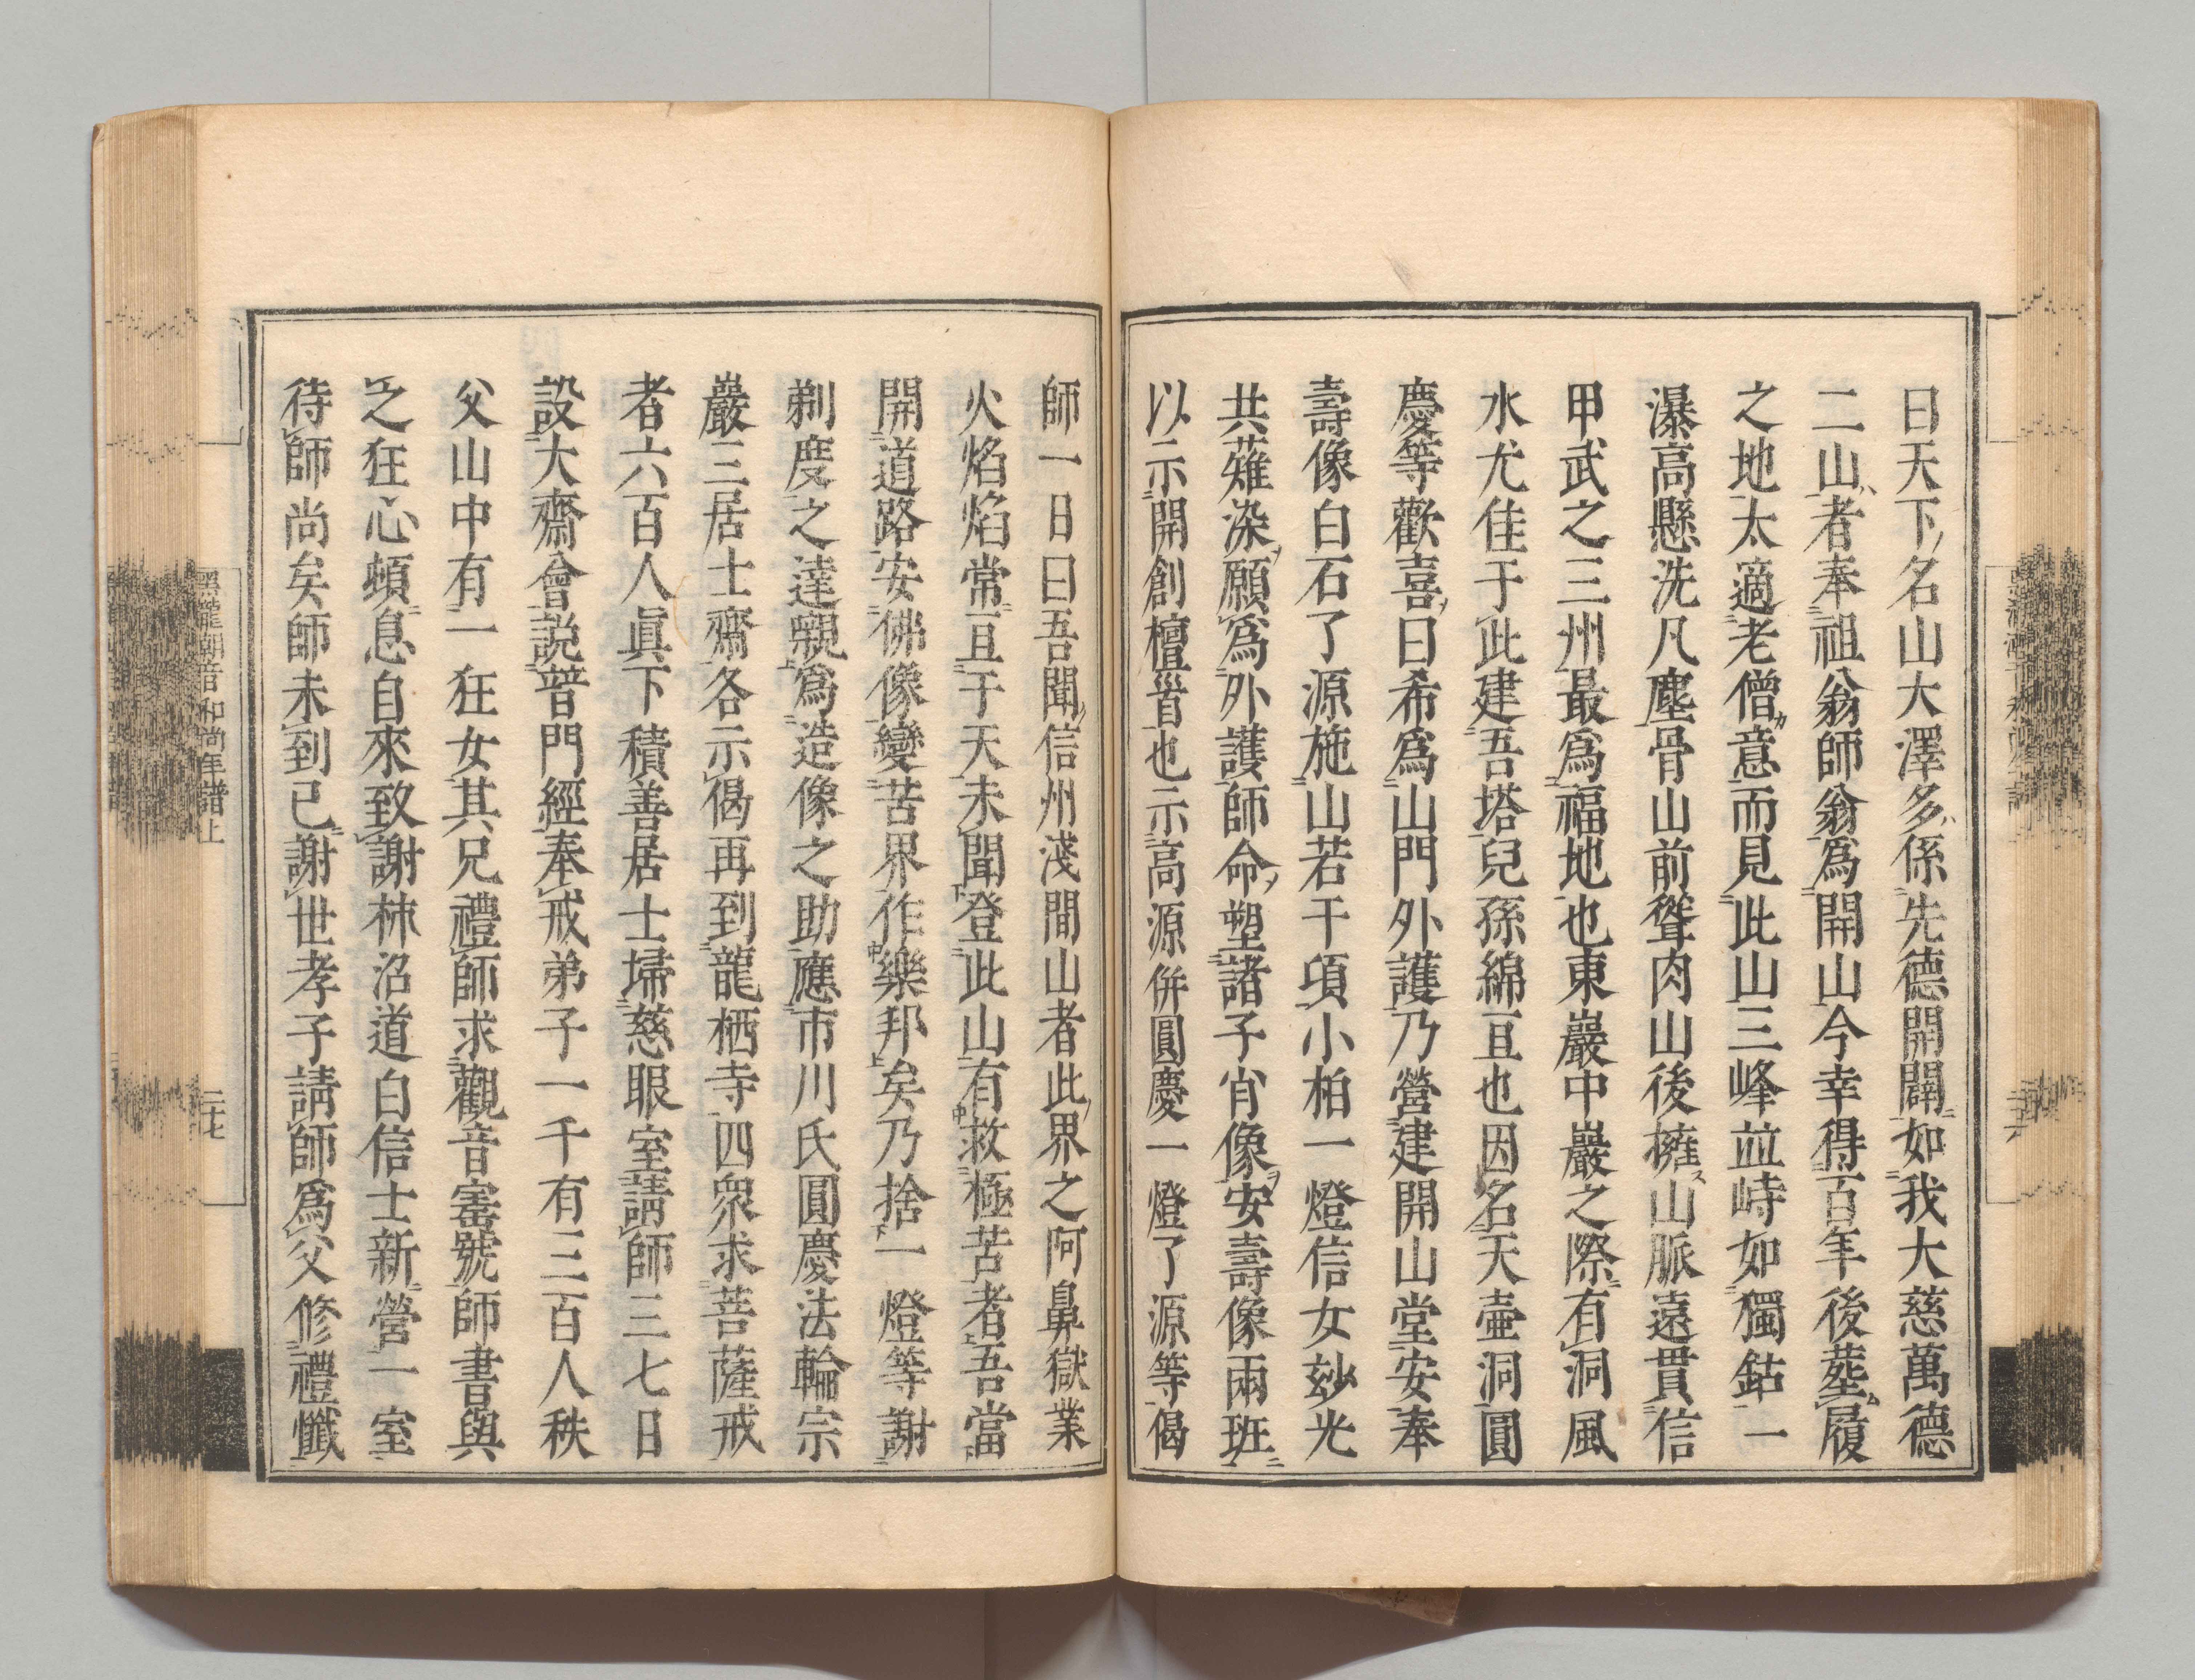 曰天下名山大澤多係先德開闢如我大慈萬德
二山者奉祖翁師翁爲開山今幸得百年後塟履
之地太適老僧意而見此山三峰並峙如獨鈷一
瀑高懸洗凡塵骨山前聳肉山後擁山脈遠貫信
甲武之三州最爲福地也東巖中巖之際有洞風
水尤佳于此建吾塔兒孫綿亘也因名天壷洞圓
慶等歡喜曰希爲山門外護乃營建開山堂安奉
壽像白石了源施山若干項小柏一燈信女玅光
共薙染願爲外護師命塑諸子肖像安壽像兩班
以示開創檀越也示高源併圓慶一燈了源等偈
師一日曰吾聞信州淺間山者此界之阿鼻獄業
火焰焰常亘于天未聞登此山有救極苦者吾當
開道路安佛像變苦界作樂邦矣乃捨一燈等謝
剃度之達嚫爲造像之助應市川氏圓慶法輪宗
巖三居士齋各示偈再到龍栖寺四衆求菩薩戒
者六百人眞下積善居士埽慈眼室請師三七日
設大齋會説普門經奉戒弟子一千有三百人秩
父山中有一狂女其兄禮師求觀音寳號師書與
之狂心頓息自來致謝林沼道白信士新營一室
待師尚矣師未到已謝世孝子請師爲父修禮懺
黑瀧潮音和尚年譜上
二十七